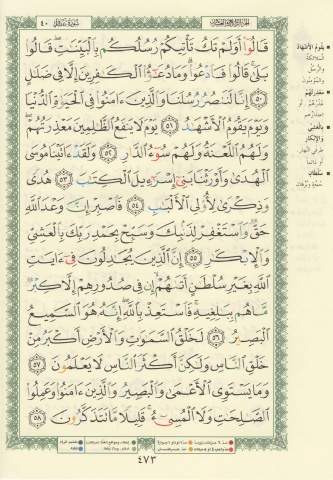 الجزء الرابع والعشرون
سورة غافر ٤٠
قَالُوٓا۟ أَوَلَمْ تَكُ تَأْتِيكُمْ رُسُلُكُم بِٱلْبَيِّنَٰتِ ۖ قَالُوا۟
بَلَىٰ ۚ قَالُوا۟ فَٱدْعُوا۟ ۗ وَمَا دُعَٰٓؤُا۟ ٱلْكَٰفِرِينَ إِلَّا فِى ضَلَٰلٍ
﴿٥٠﴾ إِنَّا لَنَنصُرُ رُسُلَنَا وَٱلَّذِينَ ءَامَنُوا۟ فِى ٱلْحَيَوٰةِ ٱلدُّنْيَا
وَيَوْمَ يَقُومُ ٱلْأَشْهَٰدُ ﴿٥١﴾ يَوْمَ لَا يَنفَعُ ٱلظَّٰلِمِينَ مَعْذِرَتُهُمْ ۖ
وَلَهُمُ ٱللَّعْنَةُ وَلَهُمْ سُوٓءُ ٱلدَّارِ ﴿٥٢﴾ وَلَقَدْ ءَاتَيْنَا مُوسَى
ٱلْهُدَىٰ وَأَوْرَثْنَا بَنِىٓ إِسْرَٰٓءِيلَ ٱلْكِتَٰبَ ﴿٥٣﴾ هُدًى
وَذِكْرَىٰ لِأُو۟لِى ٱلْأَلْبَٰبِ ﴿٥٤﴾ فَٱصْبِرْ إِنَّ وَعْدَ ٱللَّهِ
حَقٌّ وَٱسْتَغْفِرْ لِذَنۢبِكَ وَسَبِّحْ بِحَمْدِ رَبِّكَ بِٱلْعَشِىِّ
وَٱلْإِبْكَٰرِ ﴿٥٥﴾ إِنَّ ٱلَّذِينَ يُجَٰدِلُونَ فِىٓ ءَايَٰتِ
ٱللَّهِ بِغَيْرِ سُلْطَٰنٍ أَتَىٰهُمْ ۙ إِن فِى صُدُورِهِمْ إِلَّا كِبْرٌ
مَّا هُم بِبَٰلِغِيهِ ۚ فَٱسْتَعِذْ بِٱللَّهِ ۖ إِنَّهُۥ هُوَ ٱلسَّمِيعُ
ٱلْبَصِيرُ ﴿٥٦﴾ لَخَلْقُ ٱلسَّمَٰوَٰتِ وَٱلْأَرْضِ أَكْبَرُ مِنْ
خَلْقِ ٱلنَّاسِ وَلَٰكِنَّ أَكْثَرَ ٱلنَّاسِ لَا يَعْلَمُونَ ﴿٥٧﴾
وَمَا يَسْتَوِى ٱلْأَعْمَىٰ وَٱلْبَصِيرُ وَٱلَّذِينَ ءَامَنُوا۟ وَعَمِلُوا۟
ٱلصَّٰلِحَٰتِ وَلَا ٱلْمُسِىٓءُ ۚ قَلِيلًا مَّا تَتَذَكَّرُونَ ﴿٥٨﴾
يقوم الأشهاد
الملائكة
والرسل
والمؤمنون
معذرتهم
بالعشي
والإبكار
سلطان
٤٧٣